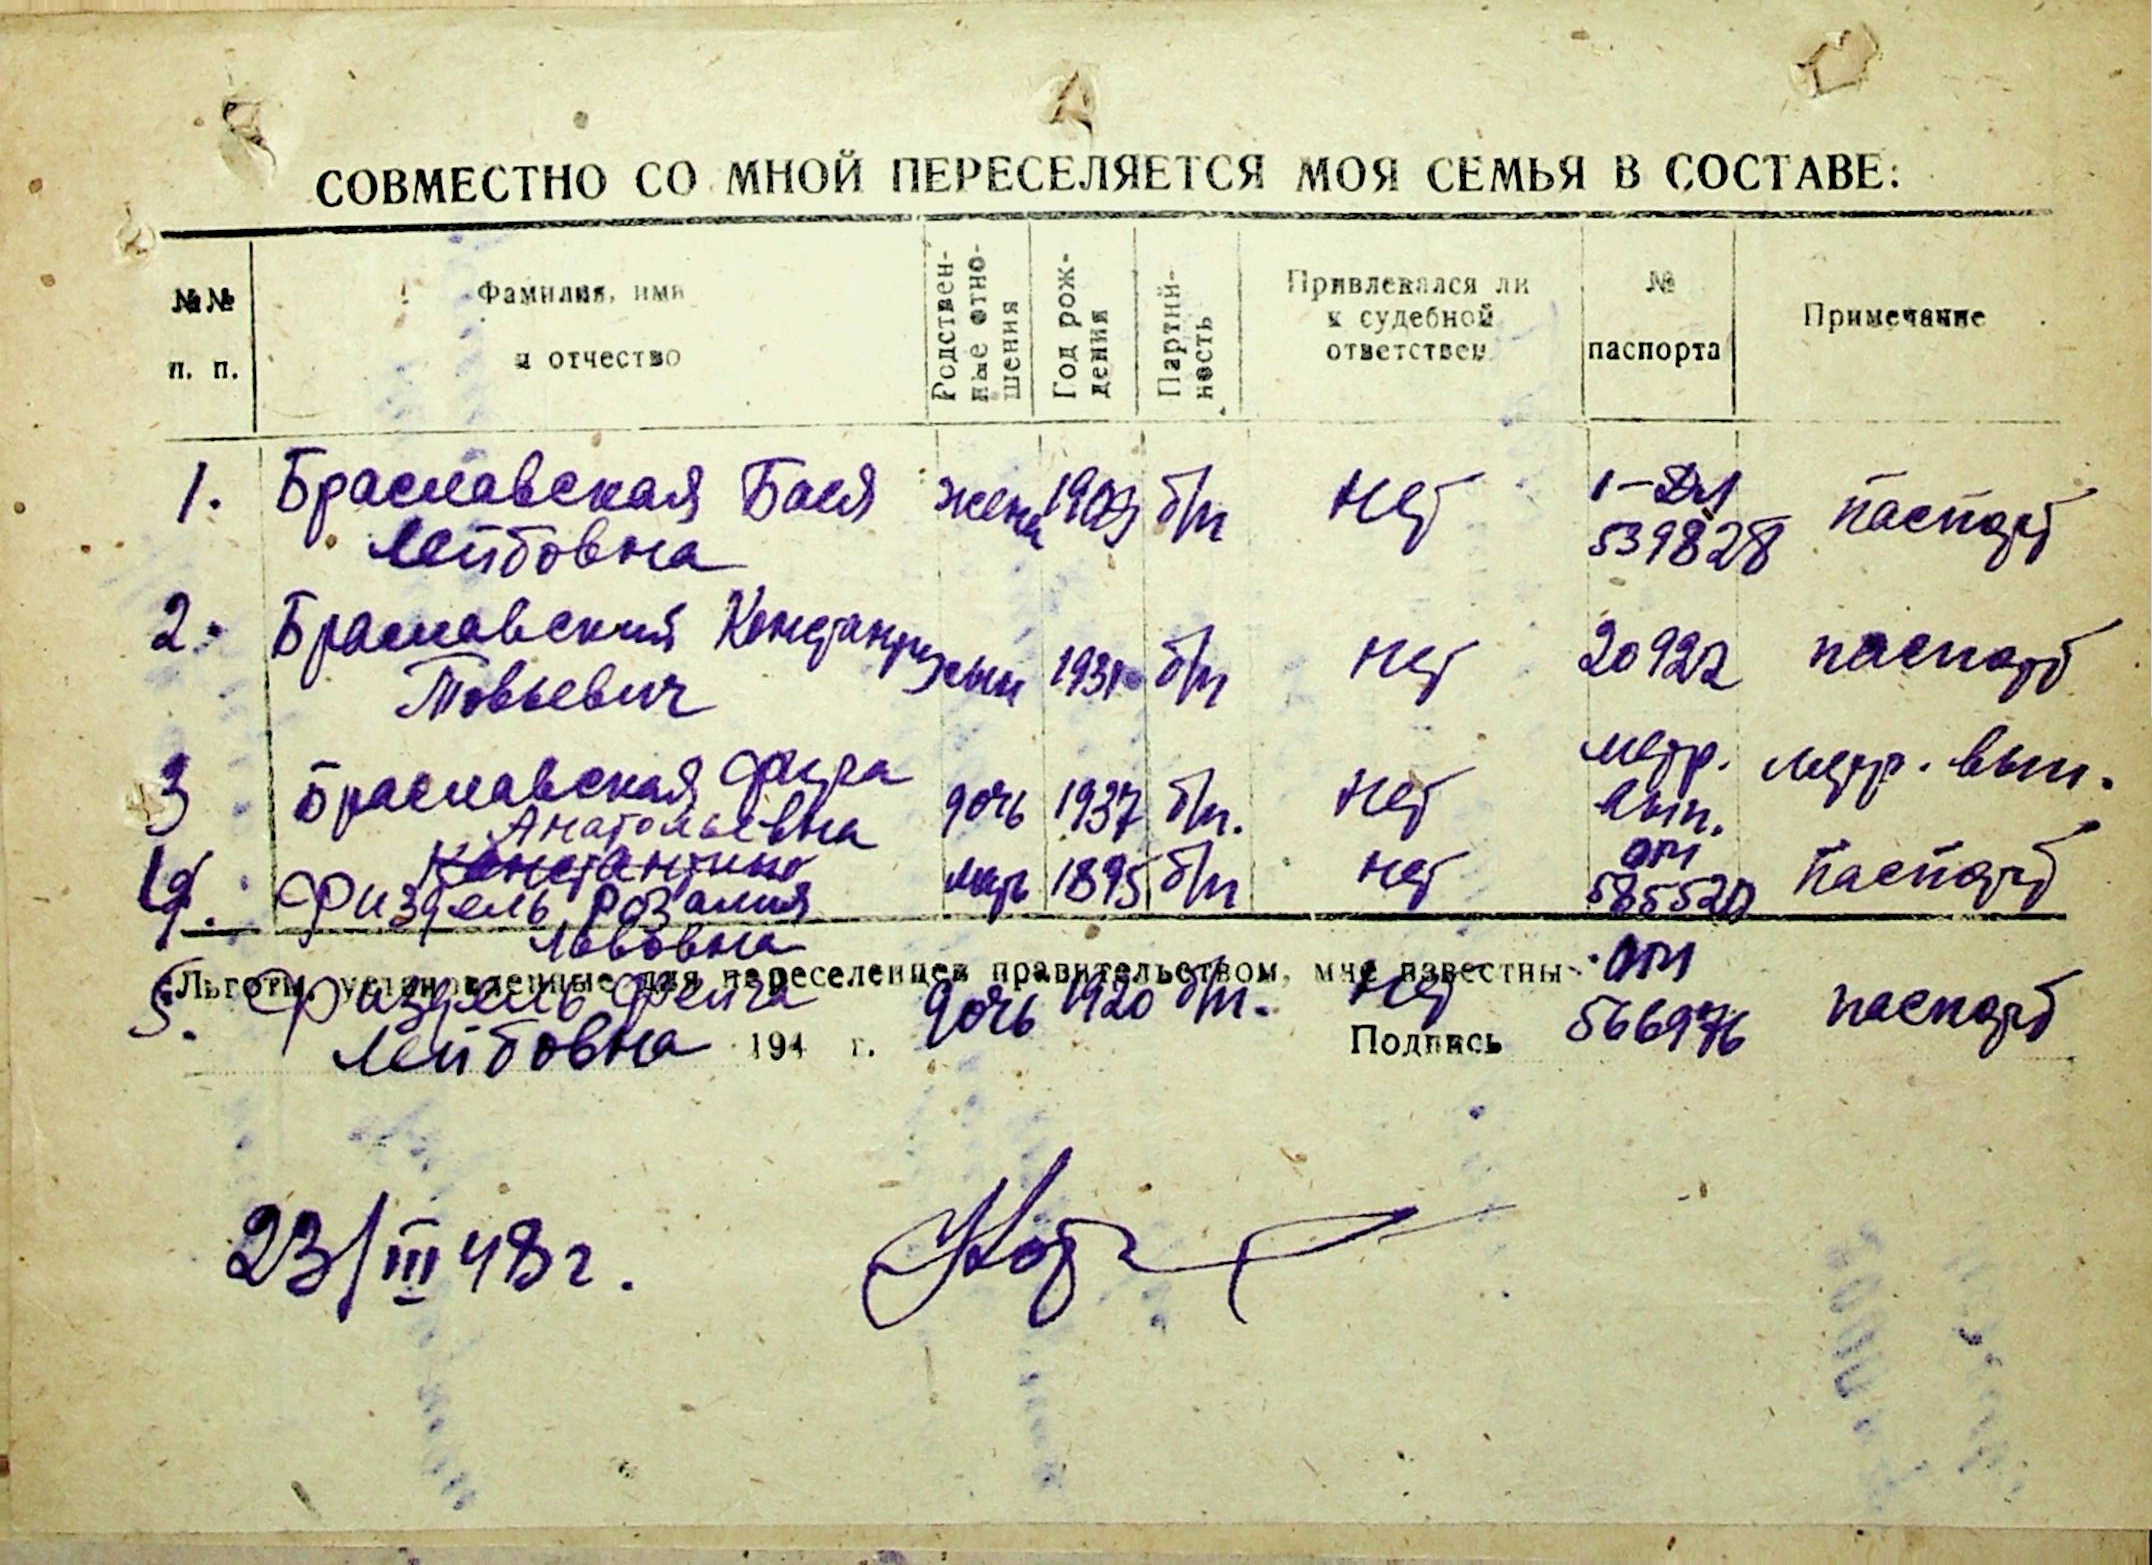 СОВМЕСТНО СО МНОЙ ПЕРЕСЕЛЯЕТСЯ МОЯ СЕМЬЯ В СОСТАВЕ:
№№ п. п. Фамилия, имя и отчество Родствен-ные отно-шения Год рож-дения Партий-ность Привлекался ли к судебной ответствен. № паспорта Примечание
1. Браславская Бася жена 1903 б/п нет 539828 паспорт
Лейбовна
2. Браславский Константин сын 1931 б/п нет 20922 паспорт
Товьевич
3 Браславская Фира дочь 1937 б/п. нет метр. вып. метр. вып.
Анатольевна
4. Физдель Розалия мать 1895 б/п нет 585520 паспорт
Львовна
Льготы, установленные для переселенцев правительством, мне известны
5. Физдель дочь 1920 б/п. нет 566976 паспорт
Лейбовна
194 г. Подпись
23/III 48 г.